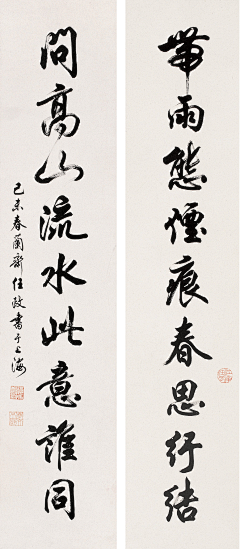 帶雨態煙痕春思紆結
問高山流水此意誰同
己未春蘭齋任政書于上海